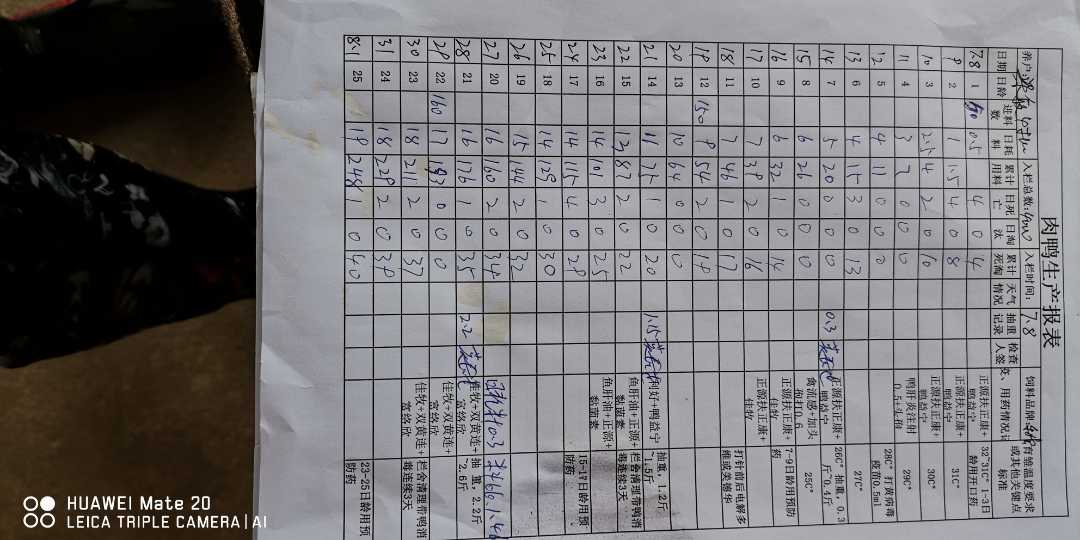 肉鸭生产报表
养户: 入栏总数: 入栏时间: 7.8 饲料品牌:
日期 日龄 进料数 日耗料 累计用料 日死亡 日淘汰 累计死淘 天气情况 抽重记录 检查人签 用药情况 育雏温度要求或其他关键点标准
7.8 1 0.5 4 0 4 正源扶正康+鸭益宁 32°31C° 1-3日龄用开口药
9 2 1 1.5 4 0 8 正源扶正康+鸭益宁 31C°
10 3 2.5 4 2 0 10 正源扶正康+鸭益宁 30C°
11 4 3 7 0 0 0 鸭肝炎注射 29C°
12 5 4 11 0 0 0 28C° 打黄病毒疫苗0.5ml
13 6 4 15 3 0 13 27C°
14 7 5 20 0 0 0 0.3 正源扶正康+鸭益宁 26C° 抽重，0.3斤~0.4斤
15 8 6 26 0 0 0 禽流感+加头孢打0.6 25C°
16 9 6 32 1 0 14 正源扶正康+佳牧 7-9日龄用预防药
17 10 7 39 2 0 16 正源扶正康+佳牧
18 11 7 46 1 0 17 打针前后电解多维或美德华
19 12 150 9 54 2 0 19
20 13 10 64 0 0 0
21 14 11 75 1 0 20 1.15 利好+鸭益宁 抽重，1.2斤~1.5斤
22 15 12 87 2 0 22 鱼肝油+正源+黏菌素 栏舍清理带鸭消毒连续3天
23 16 14 101 3 0 25 鱼肝油+正源+黏菌素
24 17 14 115 4 0 29 15-17日龄用预防药
25 18 14 129 1 0 30
26 19 15 144 2 0 32
27 20 16 160 2 0 34
28 21 16 176 1 0 35 2.2 佳牧+双黄连+富络欣 抽重，2.2斤~2.6斤
29 22 160 17 193 0 0 0 佳牧+双黄连+富络欣
30 23 18 211 2 0 37 佳牧+双黄连+富络欣 栏舍清理带鸭消毒连续3天
31 24 18 229 2 0 39
8.1 25 19 248 1 0 40 23-25日龄用预防药
HUAWEI Mate 20
LEICA TRIPLE CAMERA | AI